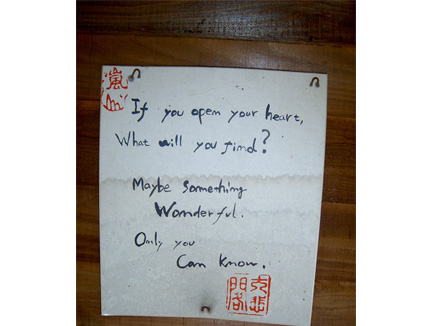 嵐山
If you open your heart,
What will you find?
Maybe Something
Wonderful.
Only you
Can Know.